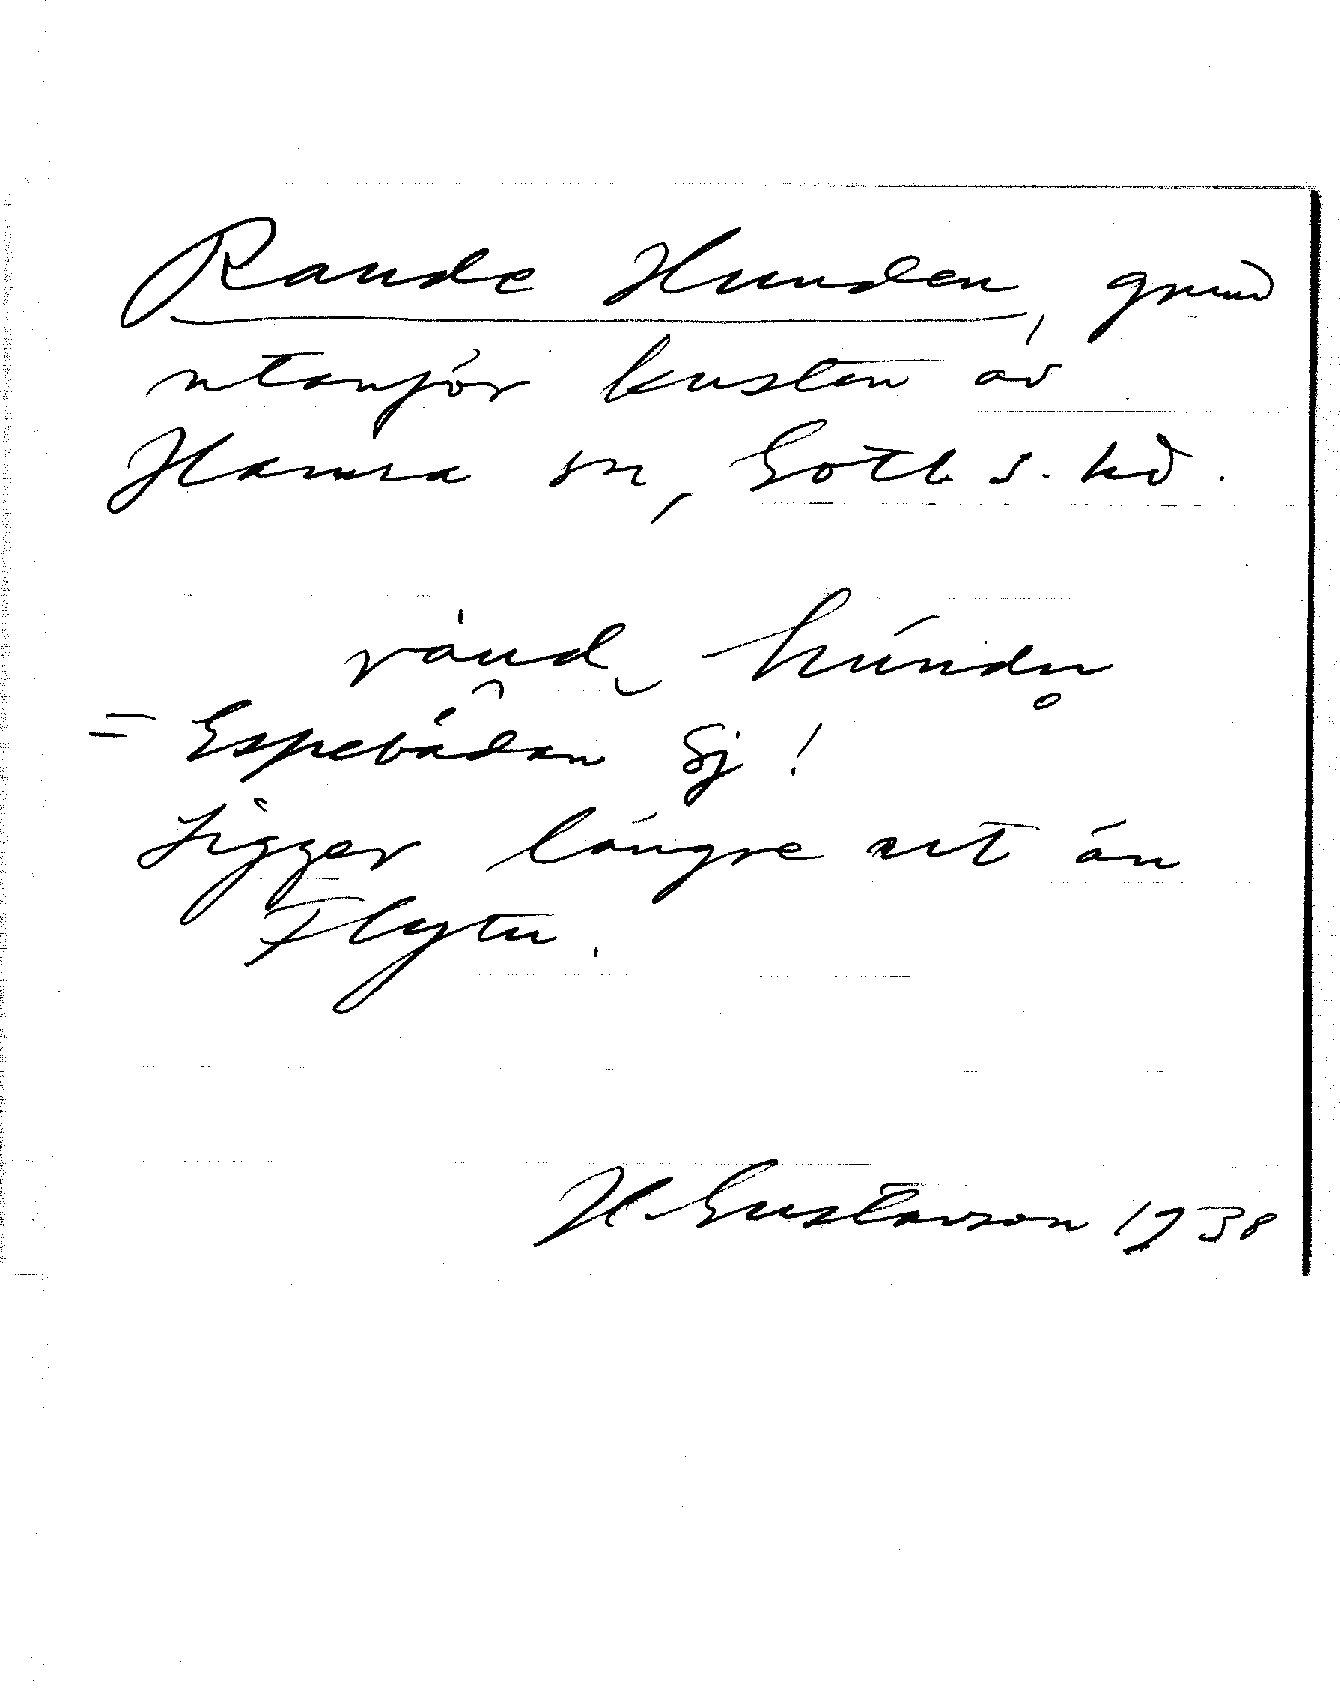 Raude Hunden, grund
utanför kusten av
Hamra sn, Gotl. s. hd.
ráud húndn̥
= Espebådan Sj!
Ligger längre ut än
Flytu.
H. Gustavson 1938